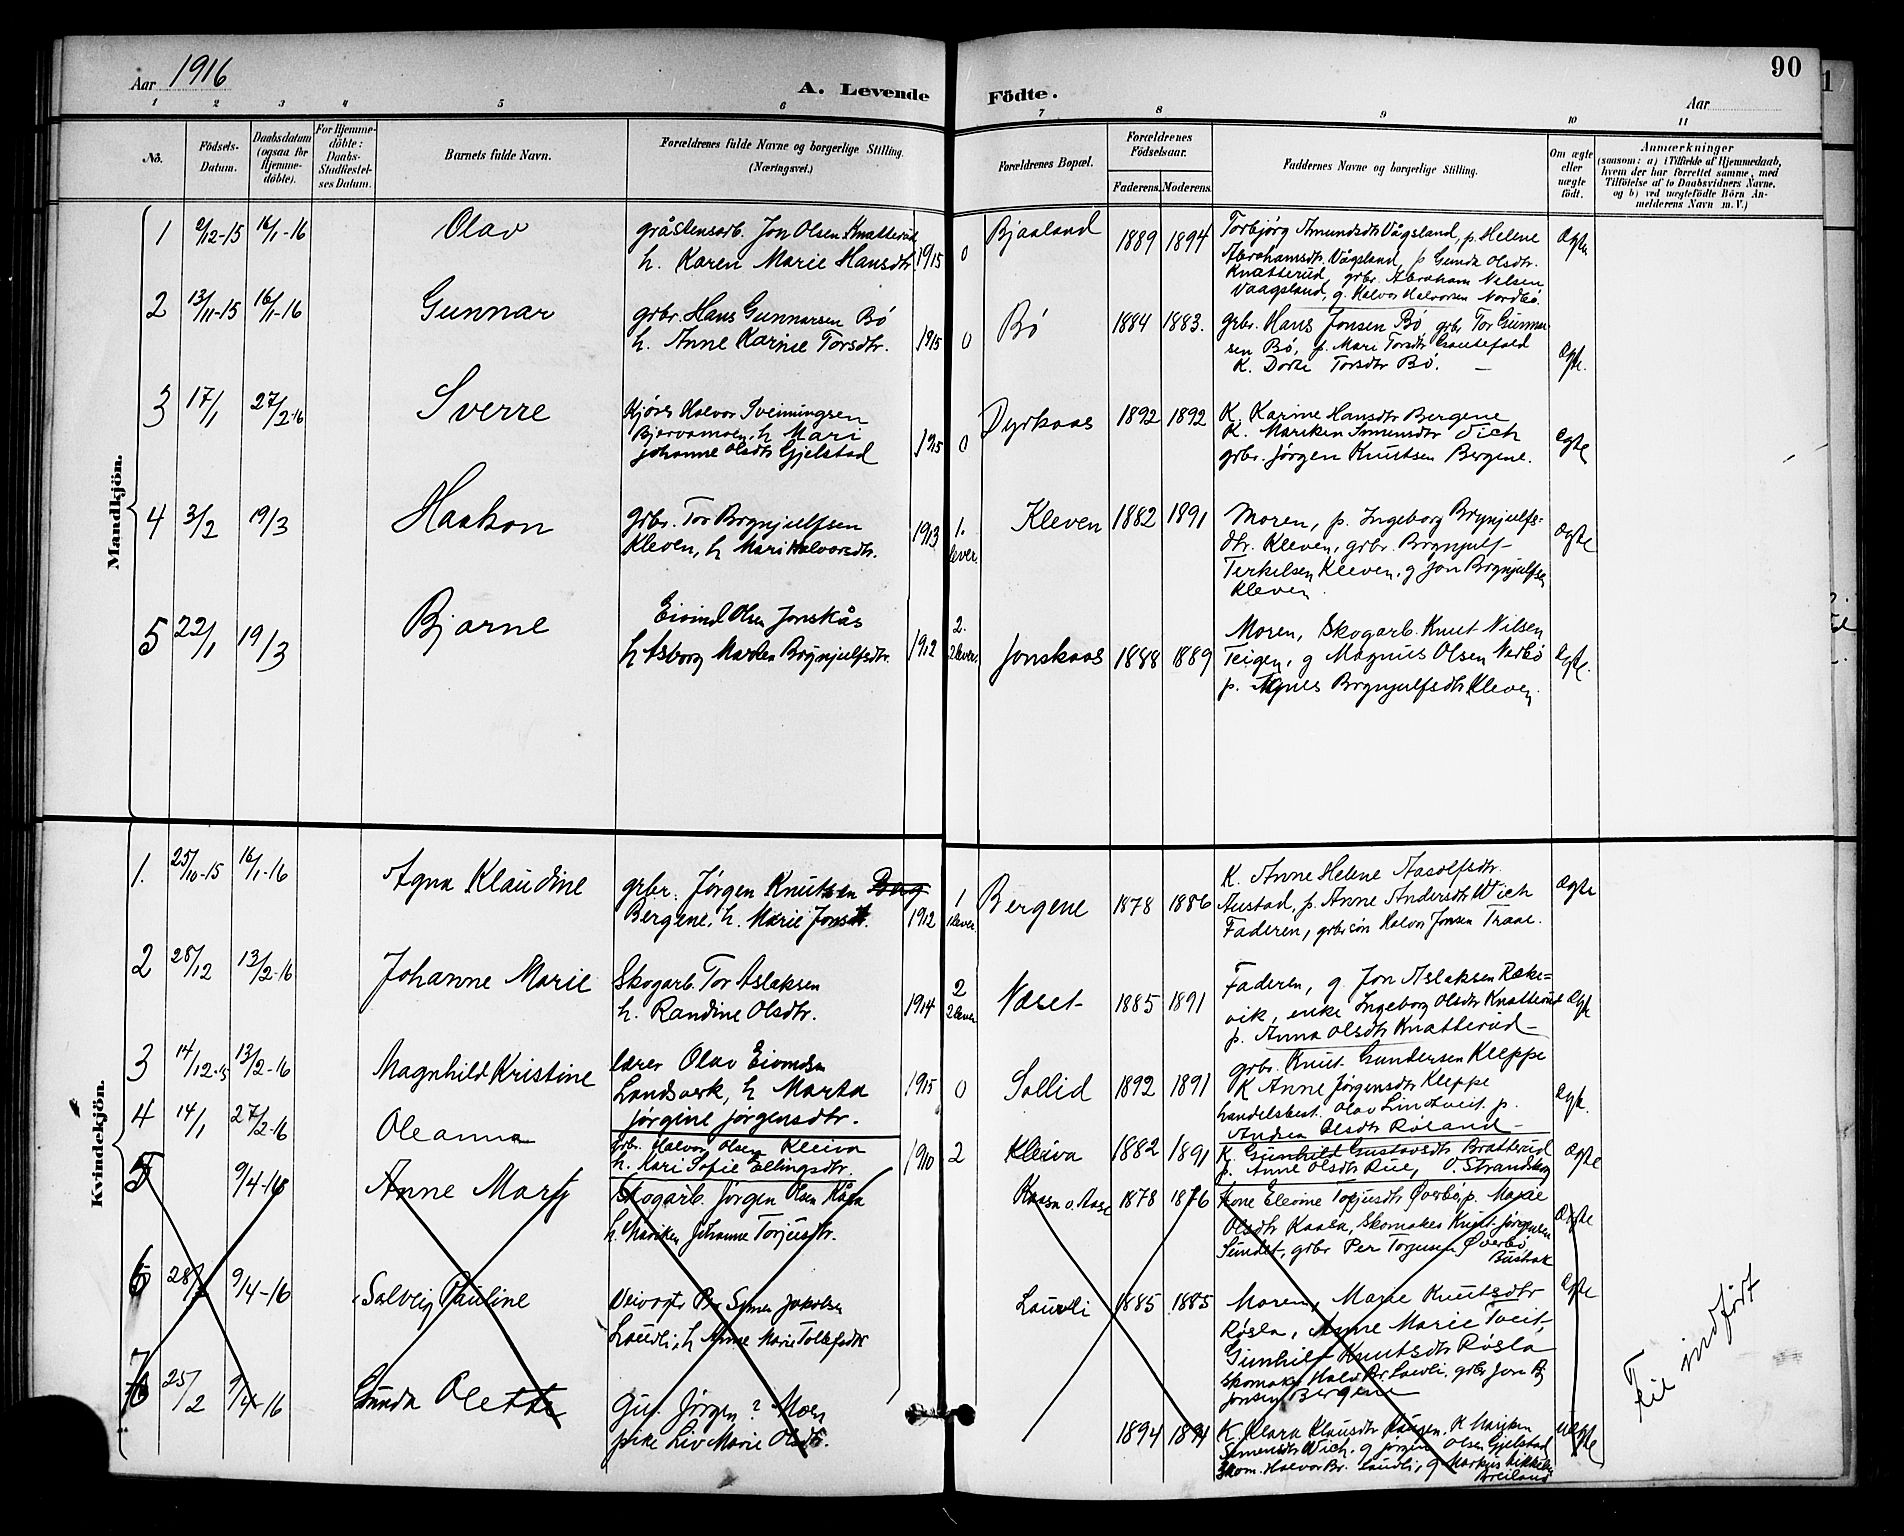 Aar 1916
A. Levende
Födte.
Aar
90
1 2 3 4 5 6 7 8 9 10 11
No.
Födsels-Datum.
Daabsdatum (ogsaa for Hjemme-döbte).
For Hjemme-döbte: Daabs-Stadfæstel-ses Datum.
Barnets fulde Navn.
Forældrenes fulde Navne og borgerlige Stilling. (Næringsvei.)
Forældrenes Bopæl.
Forældrenes Födselsaar.
Faderens. Moderens.
Faddernes Navne og borgerlige Stilling.
Om ægte eller uægte födt.
Anmærkninger
(saasom: a) i Tilfælde af Hjemmedaab, hvem der har forrettet samme, med Tilföielse af to Daabsvidners Navne, og b) ved uægtefödte Börn Anmelderens Navn m. V.)
Mandkjön.
1 9/12-15 16/1-16 Olav
gråstensarb. Jon Olsen Knatterud
h. Karen Marie Hansdtr 1915 0
Bjaaland 1889 1894
Torbjørg Amundsdtr Vågsland, p. Helene
Abrahamsdtr. Vågsland, p Gunda Olsdtr.
Knatterud grbr. Abraham Nilsen
Vaagsland, g. Halvor Halvorsen Nordbö.
Ægte
2 13/11-15 16/1-16 Gunnar
grbr. Hans Gunnarsen Bö
h. Anne Karine Torsdtr. 1915 0
Bö 1884 1883.
grbr. Hans Jonsen Bö grbr Tor Gunnar
sen Bö, p. Mari Torsdtr Gautefald
K. Dorte Torsdtr Bö.
Ægte.
3 17/1 27/2-16 Sverre
Kjörer Halvor Sveinungsen
Bjervamoen, h Mari
Johanne Olsdtr Gjelstad 1915 0
Dyrkaas 1892 1892
K. Karine Hansdtr Bergene
K. Mariken Simensdtr Vich
grbr. Jørgen Knutsen Bergene.
Ægte
4 3/2 19/3 Haakon
grbr. Tor Brynjulfsen
Kleven, h Mari Halvorsdtr. 1913 1. lever.
Kleven 1882 1891
Moren, p. Ingeborg Brynjulfs-
dtr. Kleven, grbr. Brynjulf
Terkelsen Kleven, g Jon Brynjulfsen
Kleven.
Ægte
5 22/1 19/3 Bjarne
Eivind Olsen Jonskås
h Asborg Marken Brynjulfsdtr. 1912 2. 2 lever.
Jonskaas 1888 1889
Moren, Skogarb. Knut Nilsen
Teigen, g Magnus Olsen Narbö
p. Agnes Brynjulfsdtr Kleven.
Ægte.
Kvindekjön.
1. 25/10-15 16/1-16 Agna Klaudine
grbr. Jørgen Knutsen Berg
Bergene, h. Marie Jonsdtr. 1912 1 1 lever.
Bergene 1878 1886
K. Anne Helene Aasolfsdtr.
Austad, p. Anne Andersdtr Wich
Faderen, grbrsön Halvor Jonsen Traae.
Ægte
2 28/12 13/2-16 Johanne Marie
Skogarb. Tor Aslaksen
h. Randine Olsdtr. 1914 2 2 lever
Næset 1885 1891
Faderen, g. Jon Aslaksen Ræke-
vik, enke Ingeborg Olsdtr Knatterud
p. Anna Olsdtr Knatterud
Ægte
3 14/12-15 13/2-16 Magnhild Kristine
lærer Olav Eivindsen
Landsverk, h Marta
Jørgine Jørgensdtr. 1915 0
Sollid 1892 1891
grbr. Knut Gundersen Kleppe
K Anne Jørgensdtr Kleppe
handelsbest. Olav Lindtveit p.
Andrea Olsdtr Röland
Ægte.
4 14/1 27/2-16 Oleanna
grbr. Halvor Olsen Kleiva
h. Kari Sofie Ellingsdtr. 1910 2
Kleiva 1882 1891
K. Gunhild Gustavsdtr Bratterud
p. Anne Olsdtr Rue, O. Strandberg
Ægte
5 9/4-16 Anne Marty
Skogarb. Jørgen Olsen Kåsa
h. Mariken Johanne Torjusdtr.
Kaasa v. Aase 1878 1876
Kone Elevine Torjusdtr Överbö, p. Marie
Olsdtr Kaasa, Skomaker Knut Jørgensen
Sundet, grbr Per Torjusen Överbö
Ægte
6 28/ 9/4-16 Solveig Pauline
Veivogter Br Simen Jakobsen
Laudli, h Anne Marie Tollefsdtr
Lauvli 1885 1885
Moren, Marie Knutsdtr
Røsla, Anne Marie Tveit,
Gunhild Knutsdtr Røsla
Skomaker Halv. Br. Laudli, grbr Jon Bj
Jonsen Bergene
Ægte
7 25/2 9/4-16 Gunda Olette
Gut Jørgen ? Moen
pike Liv Marie Olsdtr.
1894 1894
K. Klara Klausdtr Haugen, K Mariken
Simensdtr Wich, g Jørgen Olsen Gjelstad
Skom. Halvor Br. Laudli, g Markus Mikkelsen
Breiland
uægte
Feil indført